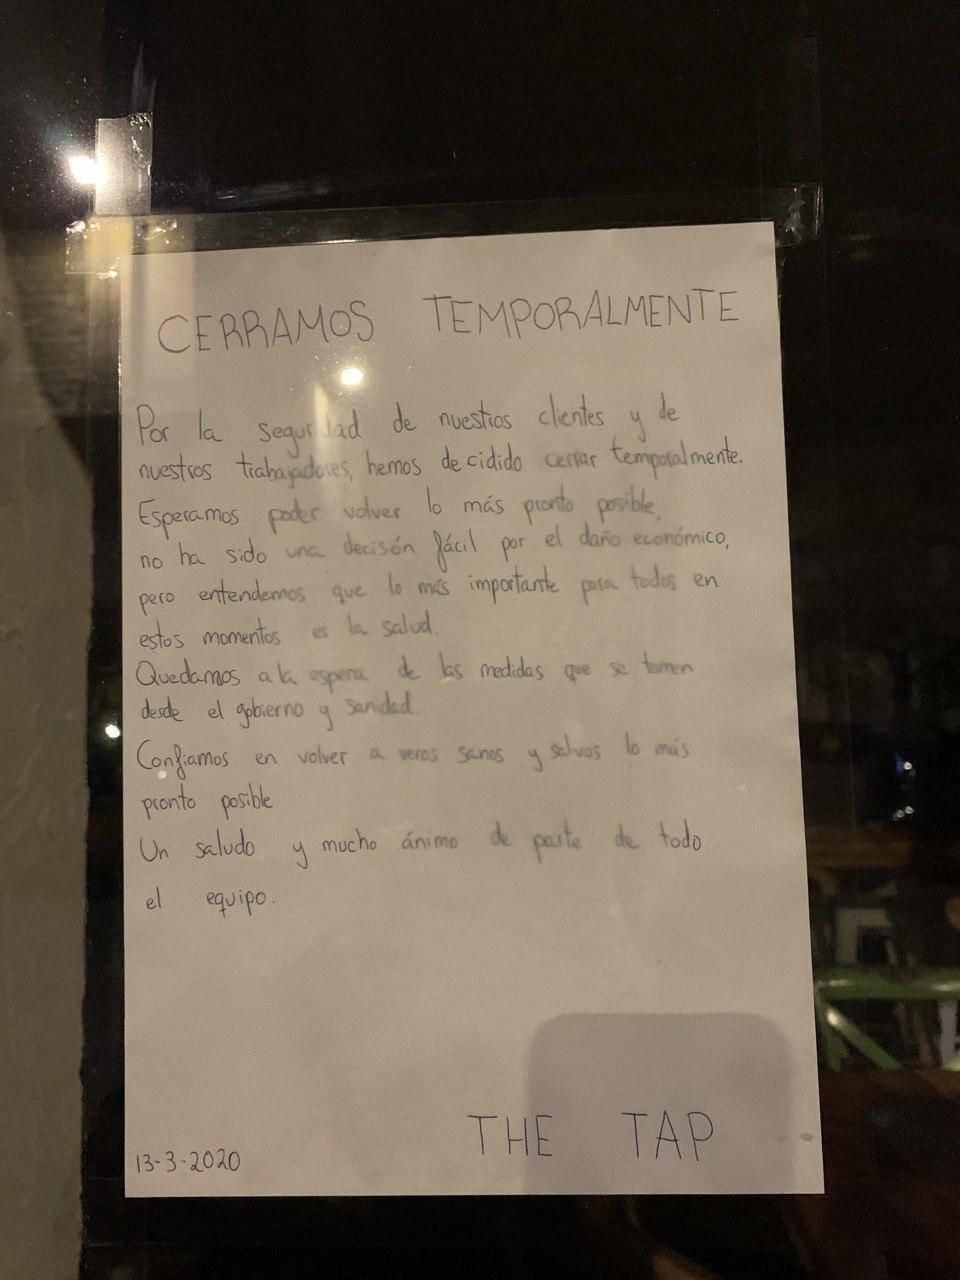 CERRAMOS TEMPORALMENTE
Por la seguridad de nuestros clientes y de
nuestros trabajadores, hemos decidido cerrar temporalmente.
Esperamos poder volver lo más pronto posible,
no ha sido una decisión fácil por el daño económico,
pero entendemos que lo más importante para todos en
estos momentos es la salud.
Quedamos a la espera de las medidas que se tomen
desde el gobierno y sanidad.
Confiamos en volver a veros sanos y salvos lo más
pronto posible.
Un saludo y mucho ánimo de parte de todo
el equipo.
THE TAP
13-3-2020